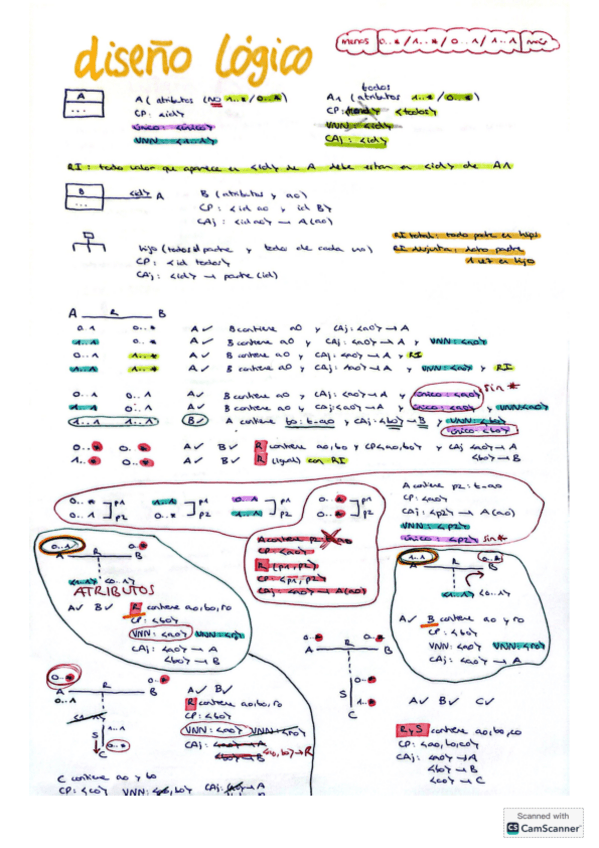 diseño lógico
menos 0..* / 1..* / 0..1 / 1..1 más
A
...
A ( atributos (NO 1..* / 0..*)
CP: <id>
único <único>
VNN: <1..1>
todos
A1 (atributos 1..* / 0..*)
CP: <todos>
VNN: <id>
CAj <id>
RI: todo valor que aparece en <id> de A debe estar en <id> de A1
B
...
<id> A
B (atributos y a0)
CP: <id a0 y id B>
CAj: <id a0> → A(a0)
hijo (todos del padre y todo de cada uno)
CP: <id todos>
CAj: <id> → padre (id)
RI total: todo padre es hijo
RI disjunta: dato padre
1 vez en hijo
A R B
0..1 0..* A✓ B contiene a0 y CAj: <a0> → A
1..1 0..* A✓ B contiene a0 y CAj: <a0> → A y VNN: <a0>
0..1 1..* A✓ B contiene a0 y CAj: <a0> → A y RI
1..1 1..* A✓ B contiene a0 y CAj: <a0> → A y VNN: <a0> y RI
0..1 0..1 A✓ B contiene a0 y CAj: <a0> → A y único: <a0> sin *
1..1 0..1 A✓ B contiene a0 y CAj: <a0> → A y único: <a0> y VNN <a0>
1..1 1..1 B✓ A contiene b0: b-a0 y CAj: <b0> → B y VNN: <b0>
único: <b0>
0..* 0..* A✓ B✓ R contiene a0, b0 y CP <a0, b0> y CAj <a0> → A
<b0> → B
1..* 0..* A✓ B✓ R (igual) con RI
0..* ]p1 1..1 ]p1 0..1 ]p1 0..* ]p1
0..1 ]p2 0..* ]p2 1..1 ]p2 0..* ]p2
A contiene p2: t-a0
CP: <a0>
CAj: <p2> → A(a0)
VNN: <p2>
único <p2> sin *
A contiene p2
CP <a0>
R (p1, p2)
CP <p1, p2>
CAj <a0> → A(a0)
0..1 0..*
A R B
<1..1> <0..1>
ATRIBUTOS
A✓ B✓ R contiene a0, b0, r0
CP: <b0>
VNN: <a0> VNN <r>
CAj: <a0> → A
<b0> → B
0..1 0..*
A R B
<1..1> <0..1>
A✓ B contiene a0 y r0
CP: <b0>
VNN: <a0> VNN <r0>
CAj: <a0> → A
0..* 0..*
A R B
0..*
S
1..*
C
A✓ B✓ C✓
R y S contiene a0, b0, c0
CP: <a0, b0, c0>
CAj: <a0> → A
<b0> → B
<c0> → C
0..* 0..*
A R B
0..1
<1..1>
1..1
S
C 0..*
A✓ B✓
R contiene a0, b0, r0
CP: <b0>
VNN: <a0> VNN: <r0>
CAj: <a0> → A
<b0> → B <a0, b0> → R
C contiene a0 y b0
CP: <c0> VNN: <a0, b0> CAj: <a0> → A
Scanned with
CS CamScanner